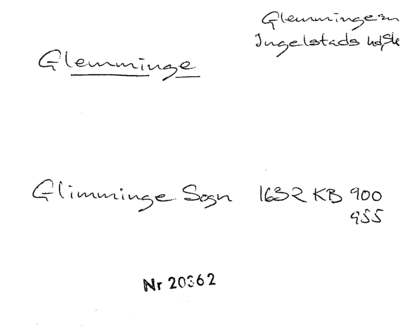 Glemminge sn
Ingelstads hd, Sk
Glemminge
Glimminge Sogn 1632 KB 900
955
Nr 20362